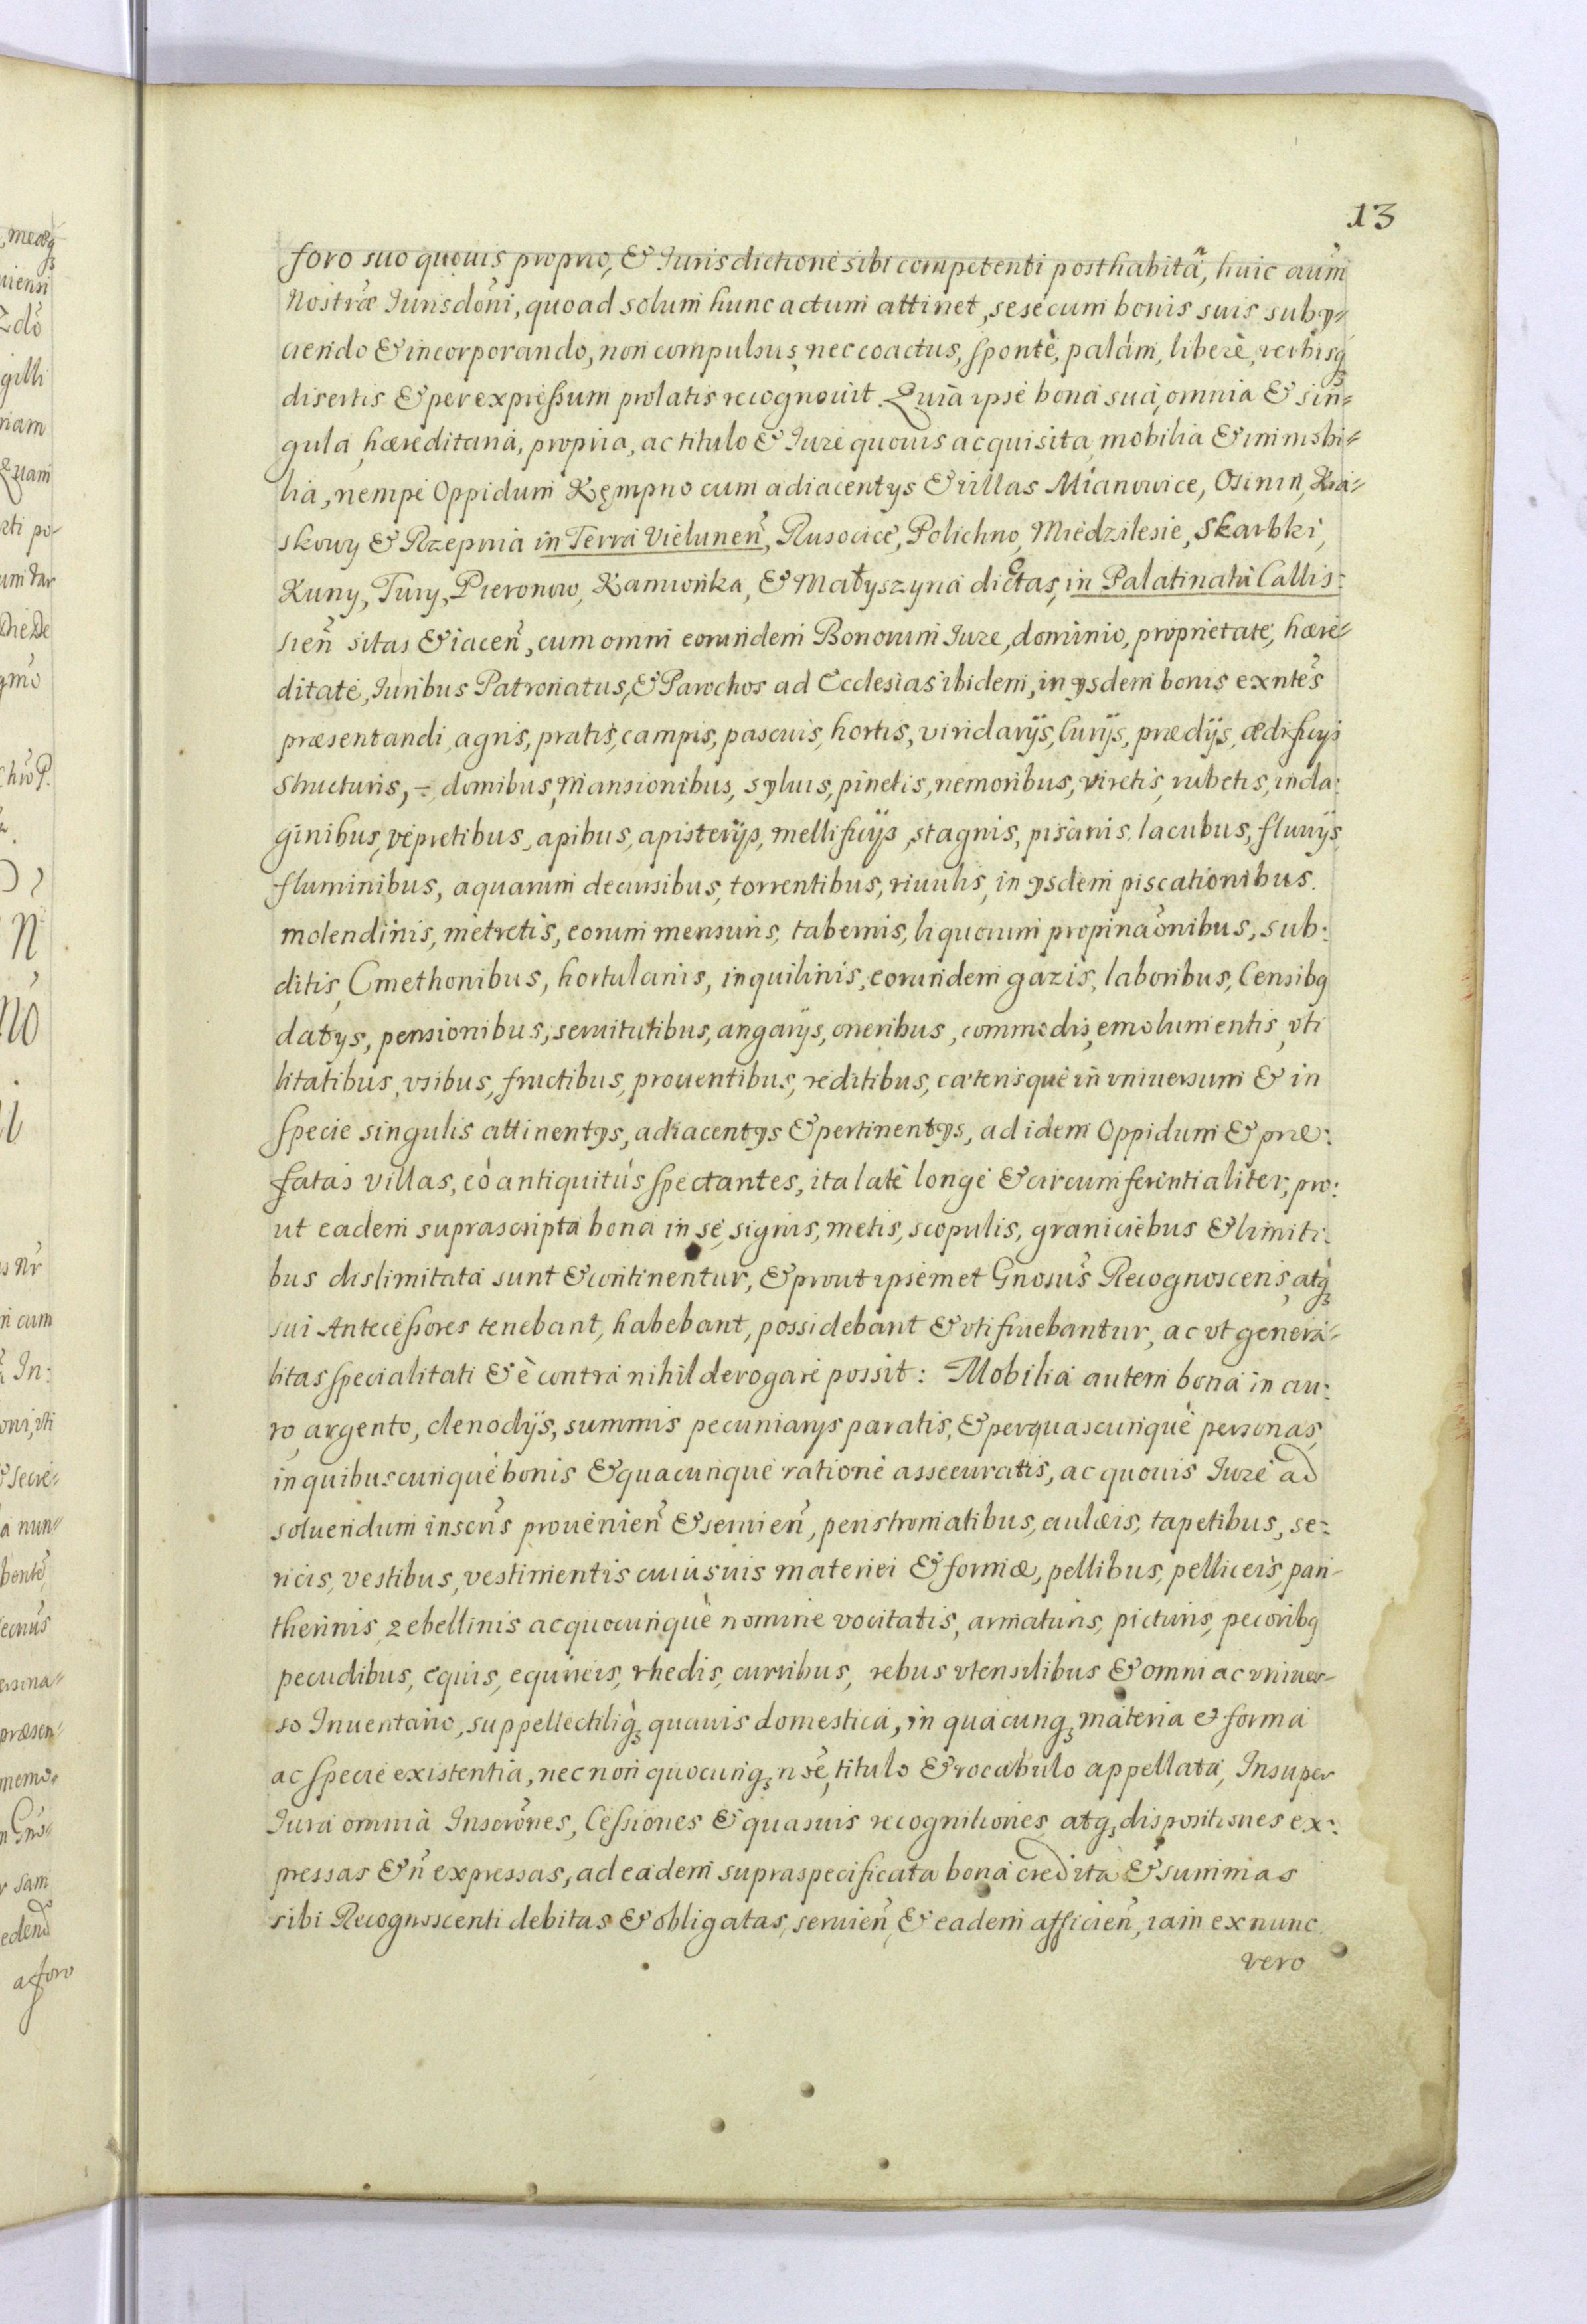 13
foro suo quouis proprio, & Jurisdictione sibi competenti posthabitâ, huic aũm
Nostræ Jurisdõni, quoad solum hunc actum attinet, sese cum bonis suis suby=
ciendo & incorporando, non compulsus, nec coactus, spontè, palàm, liberè, verbisq3
disertis & per expressum prolatis recognouit. Quià ipse bona sua, omnia & sin=
gula hæreditaria, propria, ac titulo & Jure quouis acquisita, mobilia & immobi=
lia, nempè Oppidum Kęmpno cum adiacentys & villas Mianowice, Osinÿ, Kra=
skowy & Rzepnia in Terra Vielunen̄, Rusocice, Polichno, Miedzilesie, Skarbki,
Kuny, Tury, Pieronow, Kamionka, & Matyszyna dictas, in Palatinatu Callis:
sien̄ sitas & iacen̄, cum omni eorundem Bonorum Jure, dominio, proprietate, hære=
ditate, Juribus Patronatus, & Parochos ad Ecclesias ibidem, in ysdem bonis exñtes
præsentandi, agris, pratis, campis, pascuis, hortis, viridarijs, curijs, prædijs, ædificijs
structuris, ÷ domibus, Mansionibus, syluis, pinetis, nemoribus, viretis, rubetis, inda:
ginibus, vepretibus, apibus, apisterijs, mellificijs, stagnis, piscinis, lacubus, fluuijs
fluminibus, aquarum decursibus, torrentibus, riuulis, in ysdem piscationibus.
molendinis, metretis, eorum mensuris, tabernis, liquorum propinaõnibus, sub:
ditis, Cmethonibus, hortulanis, inquilinis, eorundem gazis, laboribus, Censibq
datys, pensionibus, seruitutibus, angarijs, oneribus, commodis, emolumentis, vti
litatibus, vsibus, fructibus, prouentibus, reditibus, cæterisquè in vniuersum & in
specie singulis attinentys, adiacentys & pertinentys, ad idem Oppidum & præ:
fatas villas, eò antiquitùs spectantes, ita latè longè & circumferentialiter, pro:
ut eadem suprascripta bona in se, signis, metis, scopulis, graniciebus & limiti:
bus dislimitata sunt & continentur, & prout ipsemet Gñosus Recognoscens, atq3
sui Antecessores tenebant, habebant, possidebant & vtifruebantur, ac vt genera=
litas specialitati & è contra nihil derogare possit: Mobilia autem bona in au:
ro, argento, clenodijs, summis pecuniarys paratis, & per quascunquè personas,
in quibuscunquè bonis & quacunquè ratione assecuratis, ac quouis Jure ad
soluendum inscr̃s prouenien̄ & seruien̄, peristromatibus, aulæis, tapetibus, se:
ricis, vestibus, vestimentis cuiusuis materiei & formæ, pellibus, pelliceis, pan-
therinis, zebellinis ac quocunquè nomine vocitatis, armaturis, picturis, pecoribq
pecudibus, equis, equireis, rhedis, curribus, rebus vtensilibus & omni ac vniuer-
so Inuentario, suppellectiliq3 quauis domestica, in quacunq3 materia & forma
ac specie existentia, nec non quocunq3 nõe, titulo & vocabulo appellata, Insuper
Jura omnia Inscrõnes, Cessiones & quasuis recognitiones atq3 dispositiones ex:
pressas & ñ expressas, ad eadem supraspecificata bona credita & summas
sibi Recognoscenti debitas & obligatas, seruien̄, & eadem afficien̄, iam ex nunc
vero